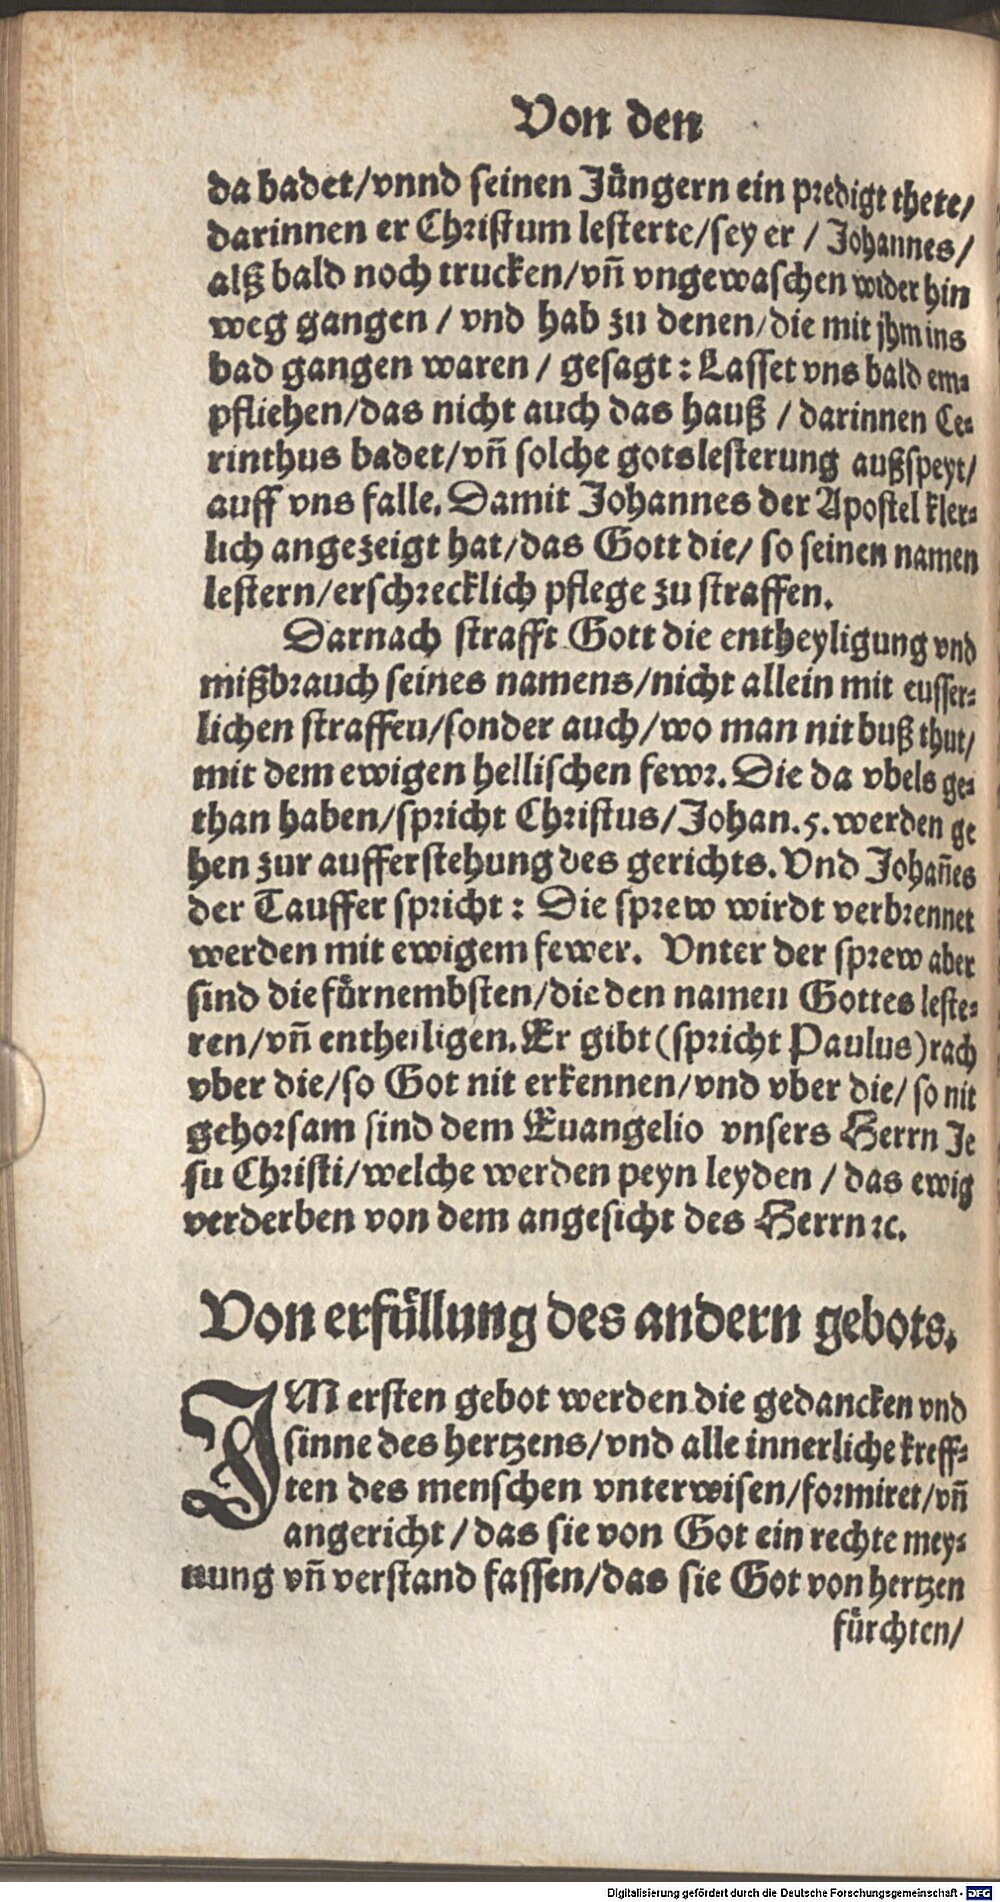 Von den
da badet/vnnd seinen Jüngern ein predigt thete/
darinnen er Christum lesterte/sey er / Johannes/
alß bald noch trucken/vñ vngewaschen wider hin
weg gangen / vnd hab zu denen/die mit jhm ins
bad gangen waren / gesagt : Lasset vns bald em⸗
pfliehen/das nicht auch das hauß / darinnen Ce⸗
rinthus badet/vñ solche gotslesterung außspeyt/
auff vns falle. Damit Johannes der Apostel kler⸗
lich angezeigt hat/das Gott die/ so seinen namen
lestern/erschrecklich pflege zu straffen.
Darnach strafft Gott die entheyligung vnd
mißbrauch seines namens/nicht allein mit eusser⸗
lichen straffen/sonder auch/wo man nit buß thut/
mit dem ewigen hellischen fewr. Die da vbels ge⸗
than haben/spricht Christus/Johan.5.werden ge
hen zur aufferstehung des gerichts. Vnd Johañes
der Tauffer spricht : Die sprew wirdt verbrennet
werden mit ewigem fewer. Vnter der sprew aber
sind die fürnembsten/die den namen Gottes leste⸗
ren/vñ entheiligen. Er gibt (spricht Paulus) rach
vber die/so Got nit erkennen/vnd vber die/ so nit
gehorsam sind dem Euangelio vnsers Herrn Je
su Christi/welche werden peyn leyden / das ewig
verderben von dem angesicht des Herrn ⁊c.
Von erfüllung des andern gebots.
IM ersten gebot werden die gedancken vnd
sinne des hertzens/vnd alle innerliche kreff⸗
ten des menschen vnterwisen/formiret/vñ
angericht / das sie von Got ein rechte mey⸗
nung vñ verstand fassen/das sie Got von hertzen
fürchten/
Digitalisierung gefördert durch die Deutsche Forschungsgemeinschaft - DFG